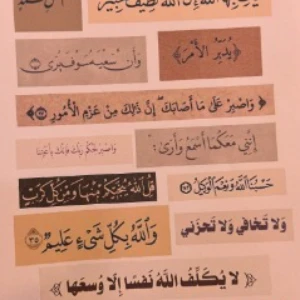 يأت بها الله إن الله لطيف خبير
﴿ يُدَبِّرُ الْأَمْرَ ﴾
وَأَنَّ سَعْيَهُ سَوْفَ يُرَىٰ
﴿ وَاصْبِرْ عَلَىٰ مَا أَصَابَكَ إِنَّ ذَٰلِكَ مِنْ عَزْمِ الْأُمُورِ ﴾
إِنَّنِي مَعَكُمَا أَسْمَعُ وَأَرَىٰ
وَاصْبِرْ لِحُكْمِ رَبِّكَ فَإِنَّكَ بِأَعْيُنِنَا
حَسْبُنَا اللَّهُ وَنِعْمَ الْوَكِيلُ
قُلِ اللَّهُ يُنَجِّيكُم مِّنْهَا وَمِن كُلِّ كَرْبٍ
وَلَا تَخَافِي وَلَا تَحْزَنِي
وَاللَّهُ بِكُلِّ شَيْءٍ عَلِيمٌ ٣٥
﴿ لَا يُكَلِّفُ اللَّهُ نَفْسًا إِلَّا وُسْعَهَا ﴾